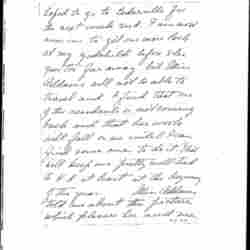 hoped to go to Cedarville for
the next week end. I am now
to get one more look
at my godchild before she
goes too far away but Miss
Addams will not be able to
travel and I find that one
of the residents is not coming
back and that her work
will fall on me until I can
find some one to do it. This
will keep me pretty well tied
to H.H. at least at the beginning
of the year. Miss Addams
told me about the picture
which pleases her and me